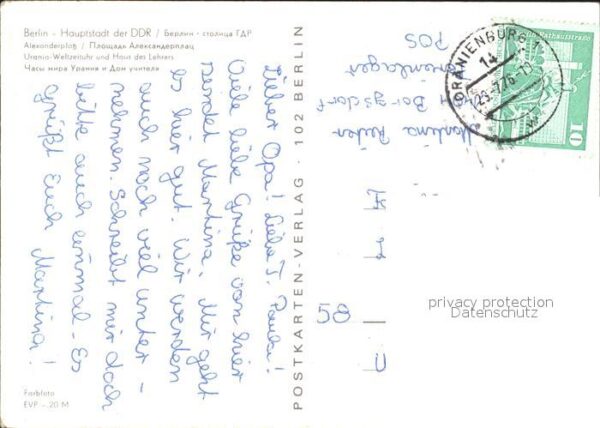 Berlin - Hauptstadt der DDR / Берлин - столица ГДР
Alexanderplatz / Площадь Александерплац
Urania-Weltzeituhr und Haus des Lehrers
Часы мира Урания и Дом учителя
Lieber Opa! Liebe T. Paula!
Viele liebe Grüße von hier
sendet Martina. Mir geht
es hier gut. Wir werden
auch noch viel unter-
nehmen. Schreibt mir doch
bitte auch einmal. Es
grüßt Euch Martina!
Farbfoto
EVP -.20 M
POSTKARTEN-VERLAG · 102 BERLIN
Martina
Borgsdorf
Ferienlager
POS
58
ORANIENBURG 1
14
23.-7.76-1
Rathausstraße
10
privacy protection
Datenschutz